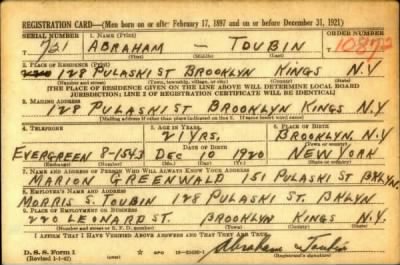 REGISTRATION CARD—(Men born on or after February 17, 1897 and on or before December 31, 1921)
SERIAL NUMBER 1. NAME (Print) ORDER NUMBER
T 721 ABRAHAM — TOUBIN 10872
2. PLACE OF RESIDENCE (Print)
128 PULASKI ST BROOKLYN KINGS N.Y
(Number and street) (Town, township, village, or city) (County) (State)
[THE PLACE OF RESIDENCE GIVEN ON THE LINE ABOVE WILL DETERMINE LOCAL BOARD
JURISDICTION; LINE 2 OF REGISTRATION CERTIFICATE WILL BE IDENTICAL]
3. MAILING ADDRESS
128 PULASKI ST BROOKLYN KINGS N.Y
[Mailing address if other than place indicated on line 2. If same insert word same]
4. TELEPHONE 5. AGE IN YEARS 6. PLACE OF BIRTH
21 YRS. BROOKLYN, N.Y
DATE OF BIRTH (Town or county)
EVERGREEN 8-1543 DEC 10 1920 NEW YORK
(Exchange) (Number) (Mo.) (Day) (Yr.) (State or country)
7. NAME AND ADDRESS OF PERSON WHO WILL ALWAYS KNOW YOUR ADDRESS
MARION GREENWALD 151 PULASKI ST BKLYN.
8. EMPLOYER'S NAME AND ADDRESS
MORRIS S. TOUBIN 128 PULASKI ST. BKLYN
9. PLACE OF EMPLOYMENT OR BUSINESS
220 LEONARD ST. BROOKLYN KINGS N.Y
(Number and street or R. F. D. number) (Town) (County) (State)
I AFFIRM THAT I HAVE VERIFIED ABOVE ANSWERS AND THAT THEY ARE TRUE.
D. S. S. Form 1 GPO Abraham Toubin
(Revised 1-1-42) (Registrant's signature)